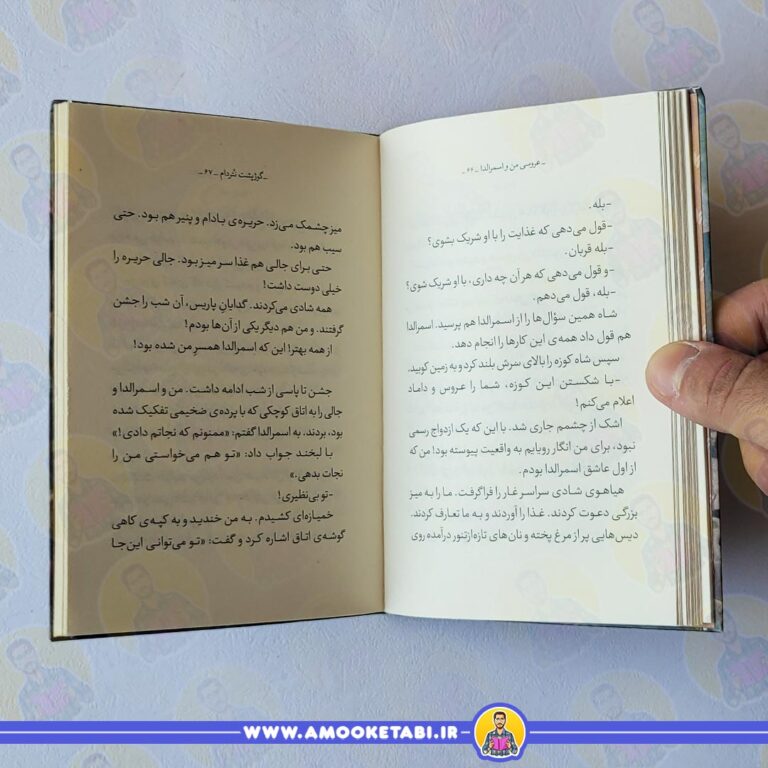 -عروسی من و اسمرالدا - ۶۶-
-بله.
-قول می‌دهی که غذایت را با او شریک بشوی؟
-بله قربان.
-و قول می‌دهی که هر آن چه داری، با او شریک شوی؟
-بله، قول می‌دهم.
شاه همین سؤال‌ها را از اسمرالدا هم پرسید. اسمرالدا
هم قول داد همه‌ی این کارها را انجام دهد.
سپس شاه کوزه را بالای سرش بلند کرد و به زمین کوبید.
-با شکستن این کوزه، شما را عروس و داماد
اعلام می‌کنم!
اشک از چشمم جاری شد. با این که یک ازدواج رسمی
نبود، برای من انگار رویایم به واقعیت پیوسته بود! من که
از اول عاشق اسمرالدا بودم.
هیاهوی شادی سراسر غار را فراگرفت. ما را به میز
بزرگی دعوت کردند. غذا را آوردند و به ما تعارف کردند.
دیس‌هایی پر از مرغ پخته و نان‌های تازه‌ازتنور درآمده روی
-گوژپشت نتردام - ۶۷-
میز چشمک می‌زد. حریره‌ی بادام و پنیر هم بود. حتی
سیب هم بود.
حتی برای جالی هم غذا سر میز بود. جالی حریره را
خیلی دوست داشت!
همه شادی می‌کردند. گدایانِ پاریس، آن شب را جشن
گرفتند. و من هم دیگر یکی از آن‌ها بودم!
از همه بهتر! این که اسمرالدا همسرِ من شده بود!
جشن تا پاسی از شب ادامه داشت. من و اسمرالدا و
جالی را به اتاق کوچکی که با پرده‌ی ضخیمی تفکیک شده
بود، بردند. به اسمرالدا گفتم: «ممنونم که نجاتم دادی!»
با لبخند جواب داد: «تو هم می‌خواستی من را
نجات بدهی.»
-تو بی‌نظیری!
خمیازه‌ای کشیدم. به من خندید و به کپه‌ی کاهی
گوشه‌ی اتاق اشاره کرد و گفت: «تو می‌توانی این‌جا
WWW.AMOOKETABI.IR